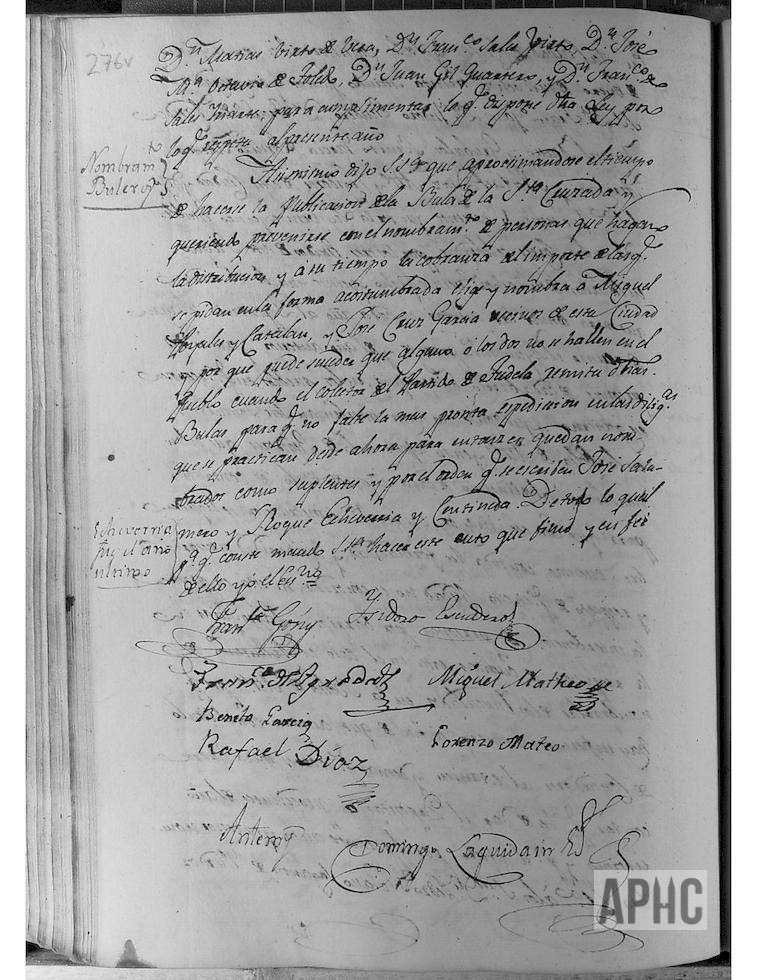 276v
Dn Matias Virto de Vera, Dn Franco Sales Virto, Dn José
Ma Octavio de Toledo, Dn Juan Gil Quartero, y Dn Franco de
Sales para cumplimentar lo q. dispone dha Ley, por
lo q. respeta al presente año
Nombramto
Buleros
Asimismo dijo S.Sa que aprocsimandose el tiempo
de hacerse la publicacion de la Bula de la Sta Cruzada y
queriendo prevenirse con el nombramto de personas que hagan
la distribucion y a su tiempo la cobranza del importe de las q.
se pidan en la forma acostumbrada elige y nombra a Miguel
y Catalan, y José Cruz Garcia vecinos de esta Ciudad
y por que puede suceder que alguno o los dos no se hallen en el
Pueblo cuando el colector del Partido de Tudela remita dhas
Bulas para q. no falte la mas pronta espedicion en las diligs
que se practican desde ahora para entonces quedan nom-
brados como suplentes y por el orden q. se escriben José
mero y Roque Echiverria y Centineda. De todo lo qual
Echiverria
fue el año
ultimo
pa q. conste mandó S.Sa hacer este auto que firmó y en fee
de ello yo el Essno
Frante Goñy Isidoro Escudero
Franco de Agreda Miguel Matheo
Benito Garcia
Rafael Diaz Lorenzo Mateo
Antemy
Domingo Laquidain
APHC